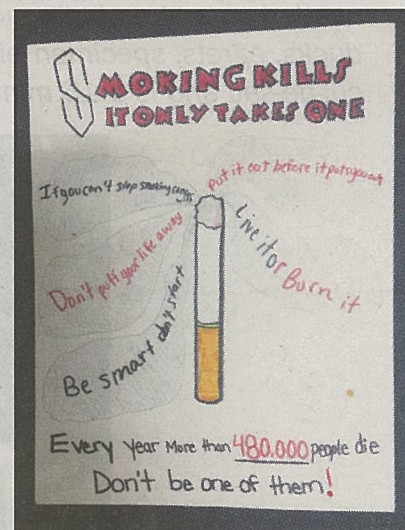 SMOKING KILLS
IT ONLY TAKES ONE
If you can't stop smoking cancer
put it out before it puts you out
Don't puff your life away
Live it or Burn it
Be smart don't start
Every year More than 480.000 people die
Don't be one of them!